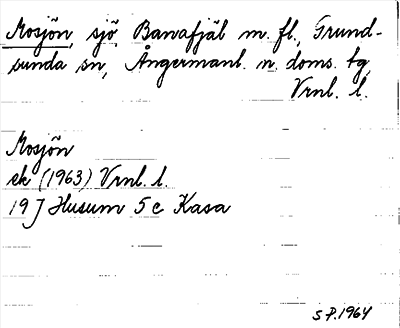 Mosjön, sjö, Banafjäl m. fl., Grund-
sunda sn, Ångermanl. n. doms. tg,
Vrnl. l.
Mosjön
ek (1963) Vrnl. l.
19 J Husum 5 c Kasa
S P. 1964